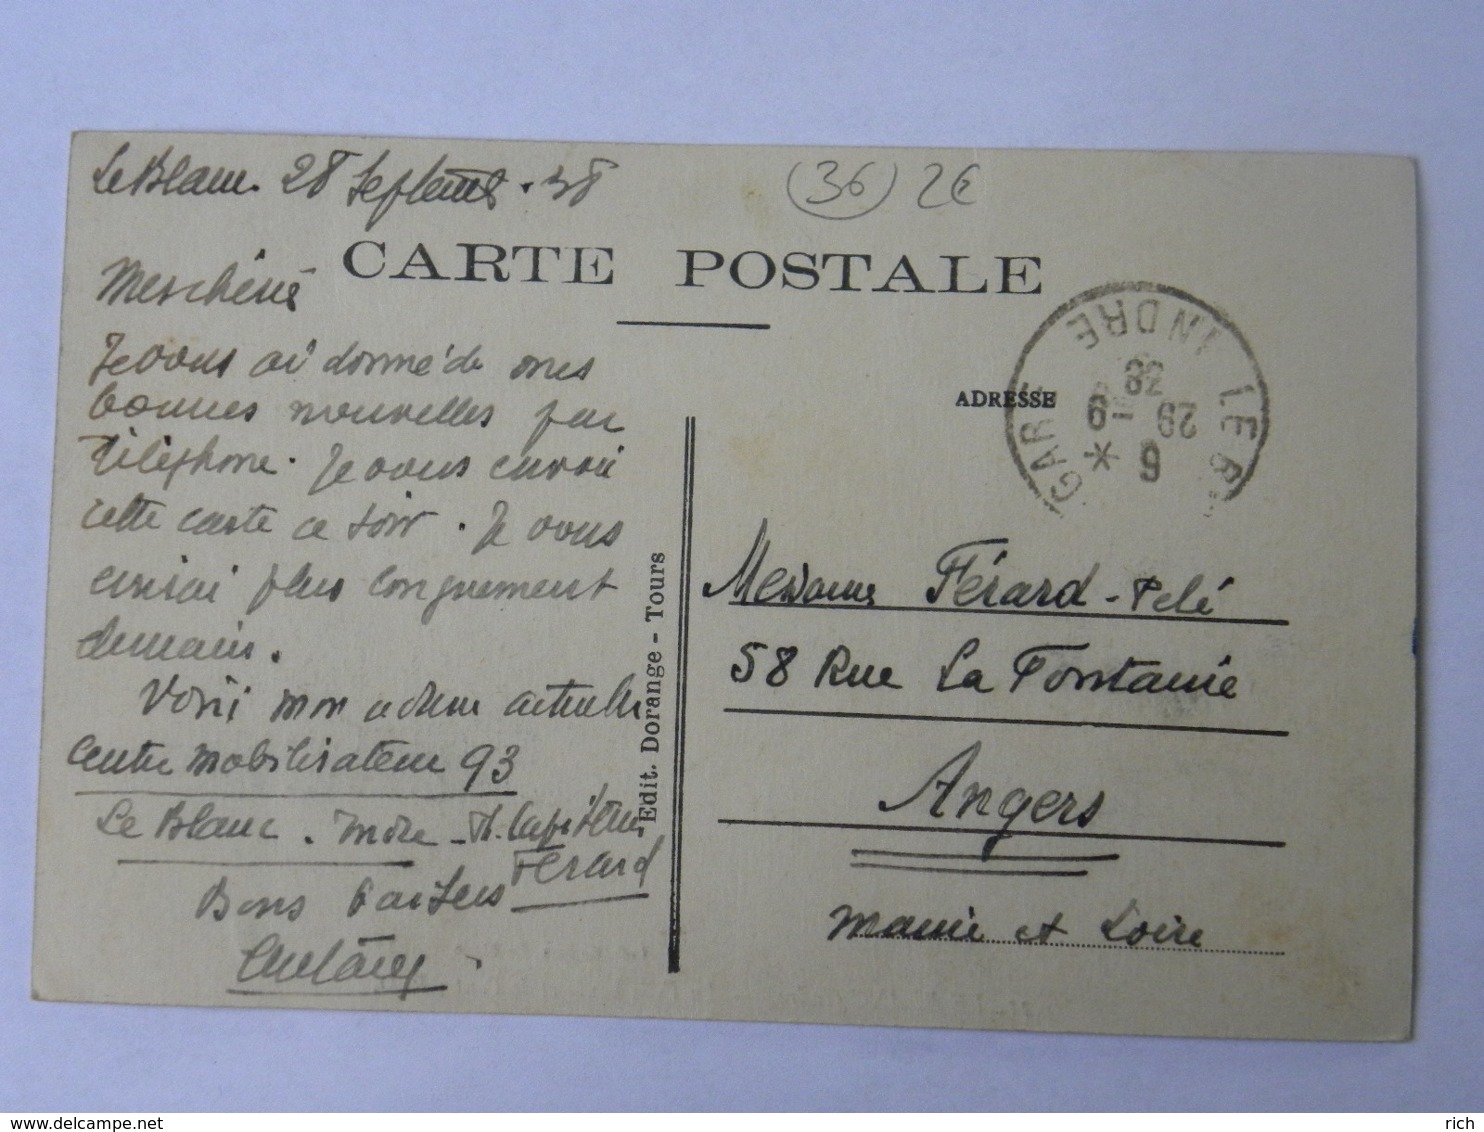 Le Blanc. 28 Septembre. 38
(36) 2€
CARTE POSTALE
Je vous ai donné de mes
bonnes nouvelles par
téléphone. Je vous envoie
cette carte ce soir. Je vous
écrirai plus longuement
demain.
Voici mon adresse actuelle
Centre mobilisateur 93
Le Blanc. Indre - Capitaine
Férard
Bons baisers
Edit. Dorange - Tours
ADRESSE
GARE LE B
INDRE
6 *
29 -9
38
Madame Férard-Pelé
58 Rue La Fontaine
Angers
Maine et Loire
rich